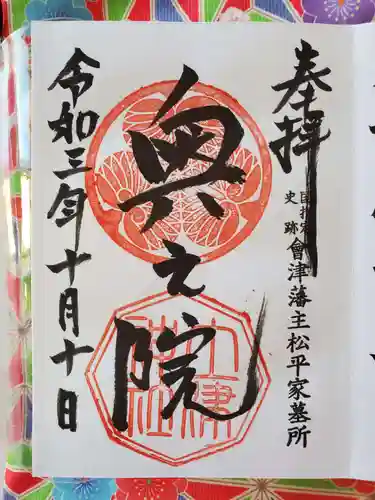 奉拝
国指定史跡
會津藩主松平家墓所
奥之院
令和三年十月十日